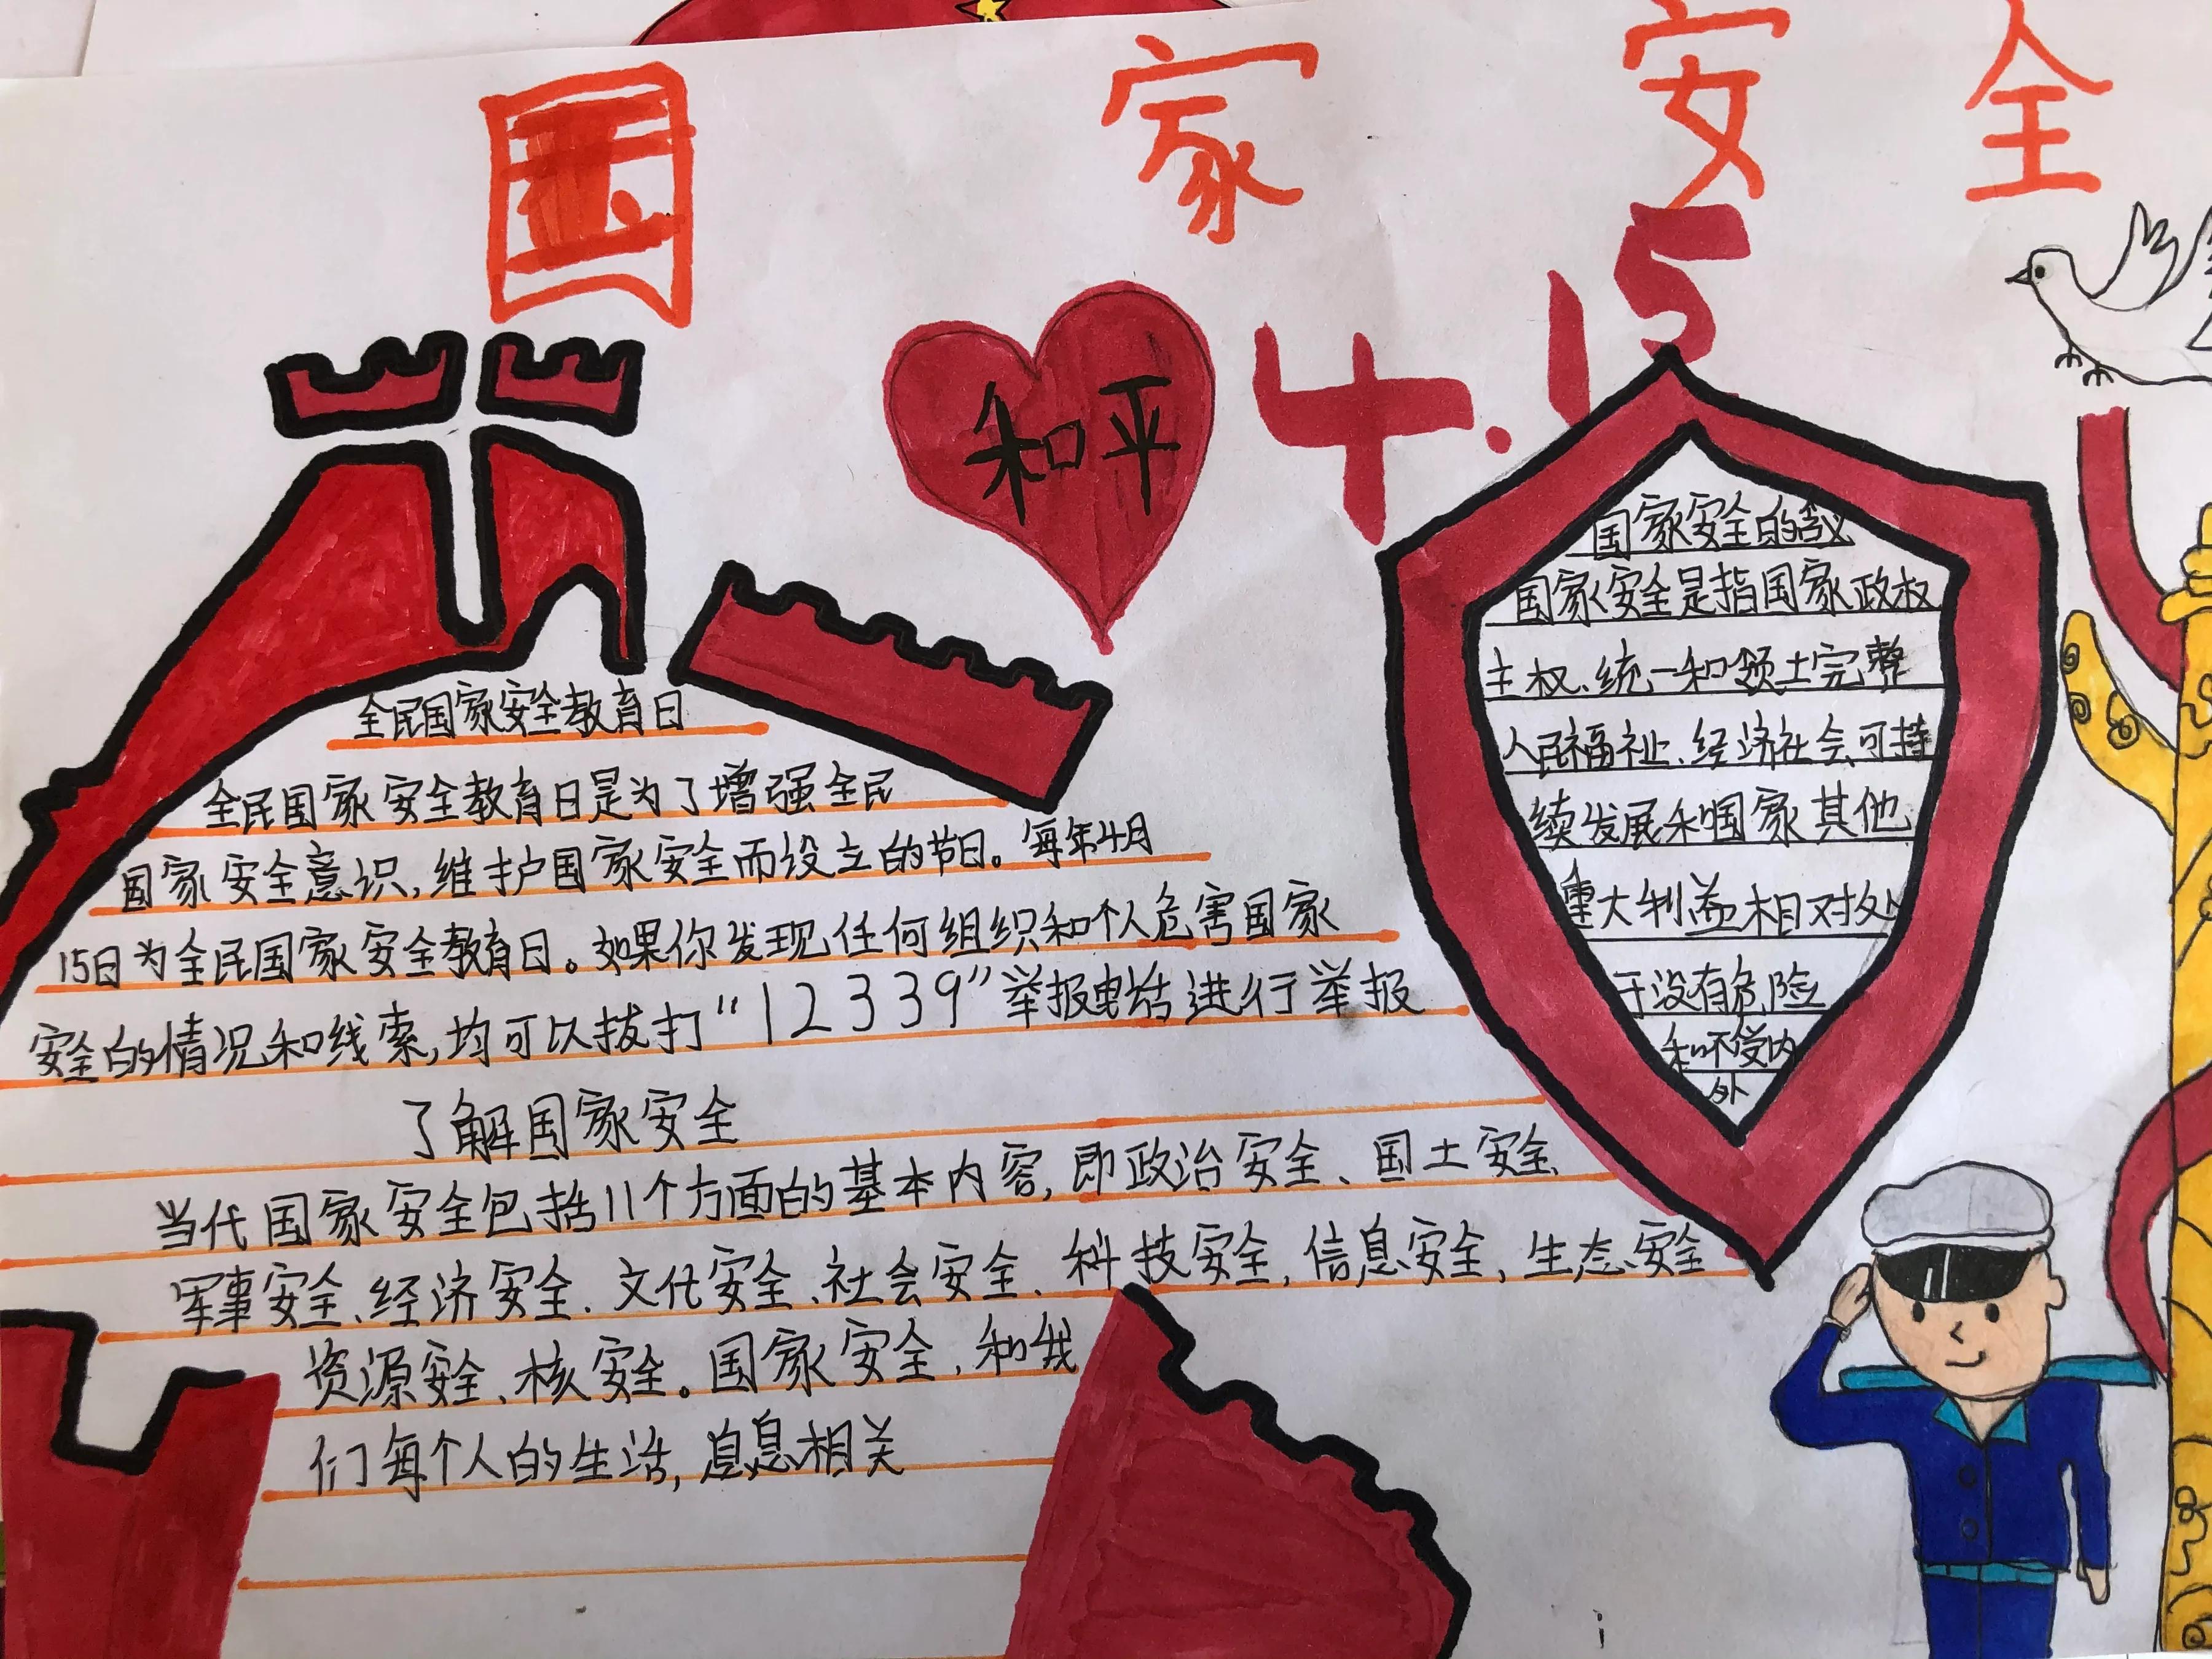 国家安全
4.15
和平
全民国家安全教育日
全民国家安全教育日是为了增强全民
国家安全意识,维护国家安全而设立的节日。每年4月
15日为全民国家安全教育日。如果你发现任何组织和个人危害国家
安全的情况和线索,均可以拨打“12339”举报电话进行举报
了解国家安全
当代国家安全包括11个方面的基本内容,即政治安全、国土安全、
军事安全、经济安全、文化安全、社会安全、科技安全,信息安全,生态安全
资源安全、核安全。国家安全,和我
们每个人的生活,息息相关
国家安全的
国家安全是指国家政权
主权、统一和领土完整
人民福祉、经济社会可持
续发展和国家其他
重大利益相对处
于没有危险
和不受内
外